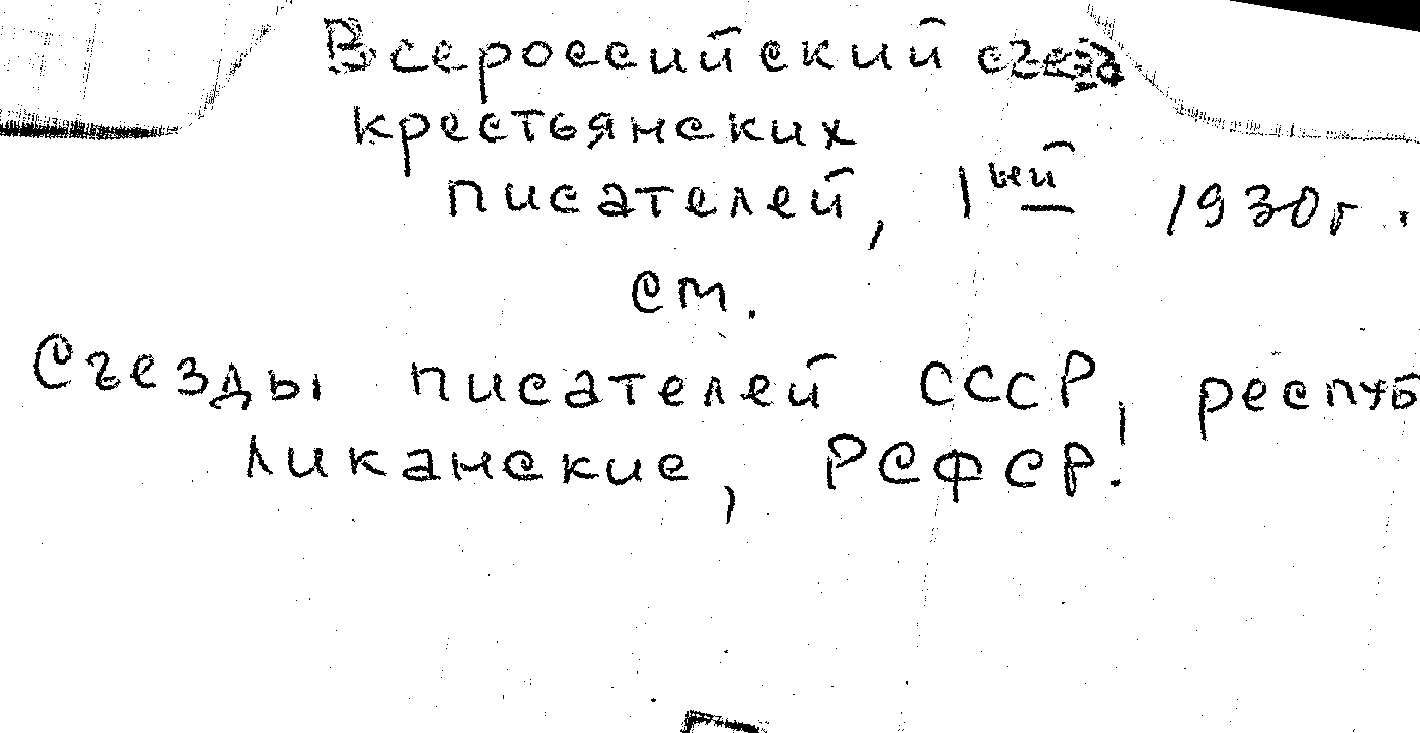 Всероссийский съезд
крестьянских
писателей, 1ый 1930г.
см.
Съезды писателей СССР, респуб
ликанские, РСФСР.